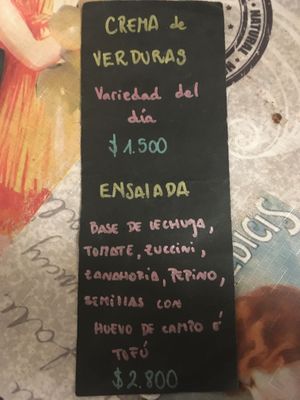 CREMA de
VERDURAS
Variedad del
día
$1.500
ENSALADA
BASE DE LECHUGA,
TOMATE, ZUCCINI,
ZANAHORIA, PEPINO,
SEMILLAS CON
HUEVO DE CAMPO É
TOFÚ
$2.800
NATURAL
EDICIS